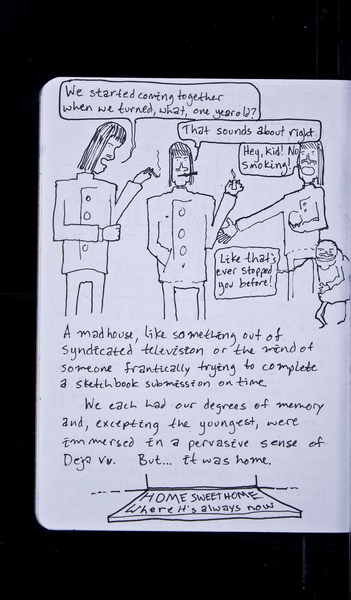 We started coming together
when we turned, what, one year old?
That sounds about right
Hey, kid! No
smoking!
Like that's
ever stopped
you before!
A madhouse, like something out of
syndicated television or the mind of
someone frantically trying to complete
a sketchbook submission on time.
We each had our degrees of memory
and, excepting the youngest, were
immersed in a pervasive sense of
Deja vu. But... it was home.
HOME SWEET HOME
Where it's always now